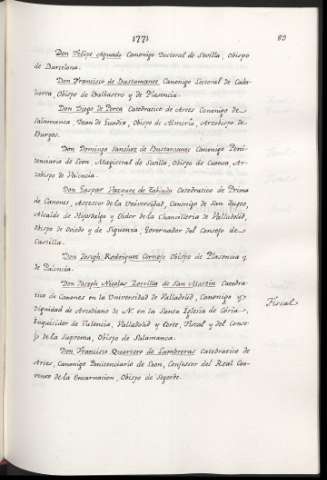 1771
83
Don Felipe Aguado Canonigo Doctoral de Sevilla, Obispo
de Barcelona.
Don Francisco de Bustamante Canonigo Lectoral de Cala-
horra, Obispo de Barbastro y de Plasencia.
Don Diego de Parca Catedratico de Artes Canonigo de
Salamanca Dean de Zamora, Obispo de Almería, Arzobispo de
Burgos.
Don Domingo Sanchez de Bustamante Canonigo Peni-
tenciario de Leon, Magistral de Sevilla, Obispo de Cuenca, Ar-
zobispo de Valencia.
Don Gaspar Vazquez de Tablada Catedratico de Prima
de Canones, Asesor de la Universidad, Canonigo de San Diego,
Alcalde de Hijosdalgo y Oidor de la Chancilleria de Valladolid,
Obispo de Oviedo y de Siguenza, Governador del Consejo de
Castilla.
Don Joseph Rodriguez Cornejo Obispo de Plasencia y
de Palencia.
Don Joseph Nicolas Zorrilla de San Martin Catedra-
tico de Canones en la Universidad de Valladolid, Canonigo y
Dignidad de Arcediano de N. en la Santa Iglesia de Coria,
Inquisidor de Valencia, Valladolid y Corte, Fiscal y del Conse-
jo de la Suprema, Obispo de Salamanca.
Fiscal
Don Francisco Quartero de Lumbreras Catedratico de
Artes, Canonigo Penitenciario de Leon, Confesor del Real Con-
vento de la Encarnacion, Obispo de Segorbe.